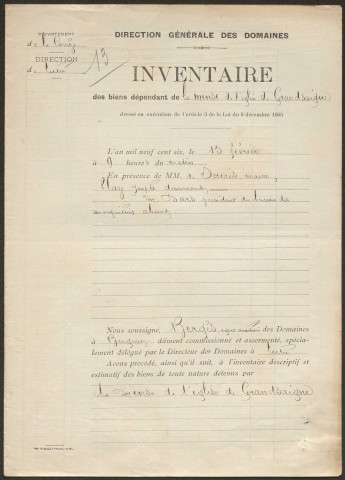 DIRECTION GÉNÉRALE DES DOMAINES
DÉPARTEMENT
de la Corrèze
DIRECTION
de Tulle
13
INVENTAIRE
des biens dépendant de la mense de l'Eglise de Grandsaigne
dressé en exécution de l'article 3 de la Loi du 9 décembre 1905
L'an mil neuf cent six, le 13 février
à 9 heures du matin
En présence de MM.
maire,
Joseph desservant
président du bureau des
marguilliers absent
Nous soussigné, Bergès des Domaines
à Bugeat, dûment commissionné et assermenté, spécia-
lement délégué par le Directeur des Domaines à Tulle
Avons procédé, ainsi qu'il suit, à l'inventaire descriptif et
estimatif des biens de toute nature détenus par
la mense de l'église de Grandsaigne